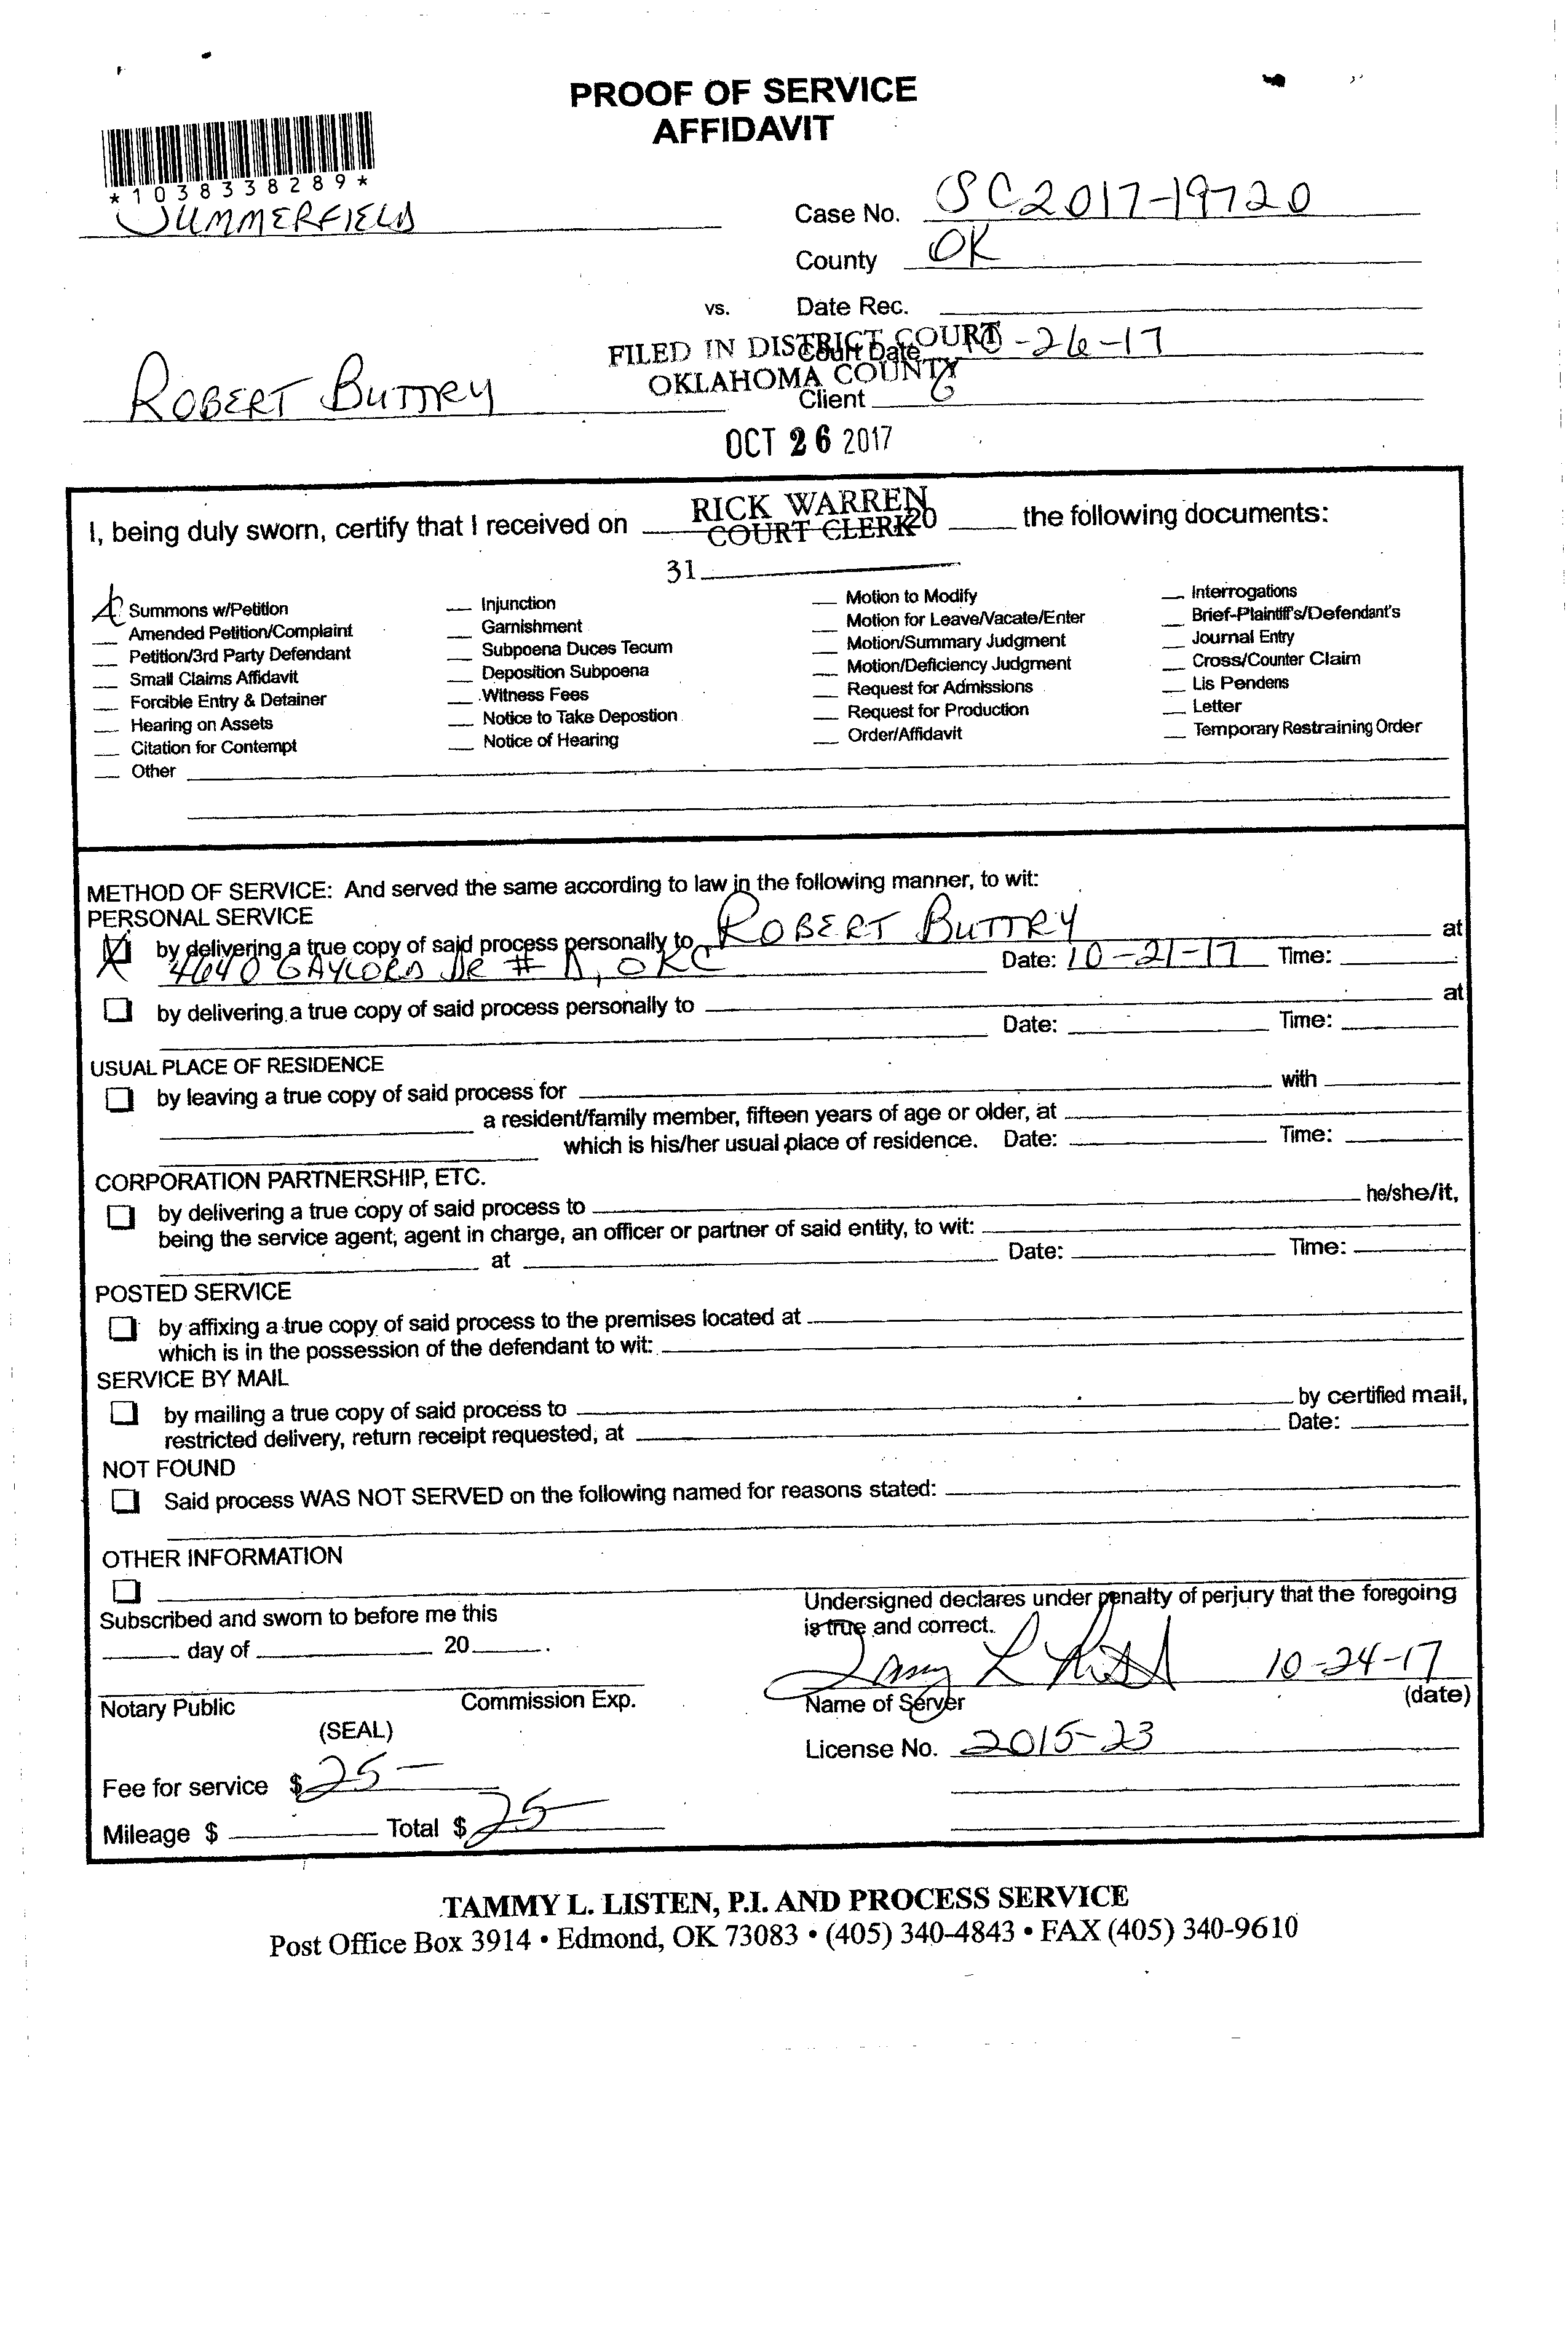 PROOF OF SERVICE
AFFIDAVIT
*1038338289*
SUMMERFIELD
Case No. SC2017-19720
County OK
vs. Date Rec.
FILED IN DISTRICT COURT
Court Date 10-26-17
OKLAHOMA COUNTY
ROBERT BUTTRY
Client 6
OCT 26 2017
RICK WARREN
COURT CLERK
I, being duly sworn, certify that I received on 20 the following documents:
31
Summons w/Petition
Amended Petition/Complaint
Petition/3rd Party Defendant
Small Claims Affidavit
Forcible Entry & Detainer
Hearing on Assets
Citation for Contempt
Other
Injunction
Garnishment
Subpoena Duces Tecum
Deposition Subpoena
Witness Fees
Notice to Take Depostion
Notice of Hearing
Motion to Modify
Motion for Leave/Vacate/Enter
Motion/Summary Judgment
Motion/Deficiency Judgment
Request for Admissions
Request for Production
Order/Affidavit
Interrogations
Brief-Plaintiff's/Defendant's
Journal Entry
Cross/Counter Claim
Lis Pendens
Letter
Temporary Restraining Order
METHOD OF SERVICE: And served the same according to law in the following manner, to wit:
PERSONAL SERVICE
by delivering a true copy of said process personally to ROBERT BUTTRY at
4640 GAYLORD DR # D, OKC Date: 10-21-17 Time:
by delivering a true copy of said process personally to at
Date: Time:
USUAL PLACE OF RESIDENCE
by leaving a true copy of said process for with
a resident/family member, fifteen years of age or older, at
which is his/her usual place of residence. Date: Time:
CORPORATION PARTNERSHIP, ETC.
by delivering a true copy of said process to he/she/it,
being the service agent, agent in charge, an officer or partner of said entity, to wit:
at Date: Time:
POSTED SERVICE
by affixing a true copy of said process to the premises located at
which is in the possession of the defendant to wit:
SERVICE BY MAIL
by mailing a true copy of said process to by certified mail,
restricted delivery, return receipt requested, at Date:
NOT FOUND
Said process WAS NOT SERVED on the following named for reasons stated:
OTHER INFORMATION
Undersigned declares under penalty of perjury that the foregoing
is true and correct.
Subscribed and sworn to before me this
day of 20 .
10-24-17
Name of Server (date)
Notary Public Commission Exp.
(SEAL)
License No. 2015-23
Fee for service $ 25-
Mileage $ Total $ 25-
TAMMY L. LISTEN, P.I. AND PROCESS SERVICE
Post Office Box 3914 • Edmond, OK 73083 • (405) 340-4843 • FAX (405) 340-9610